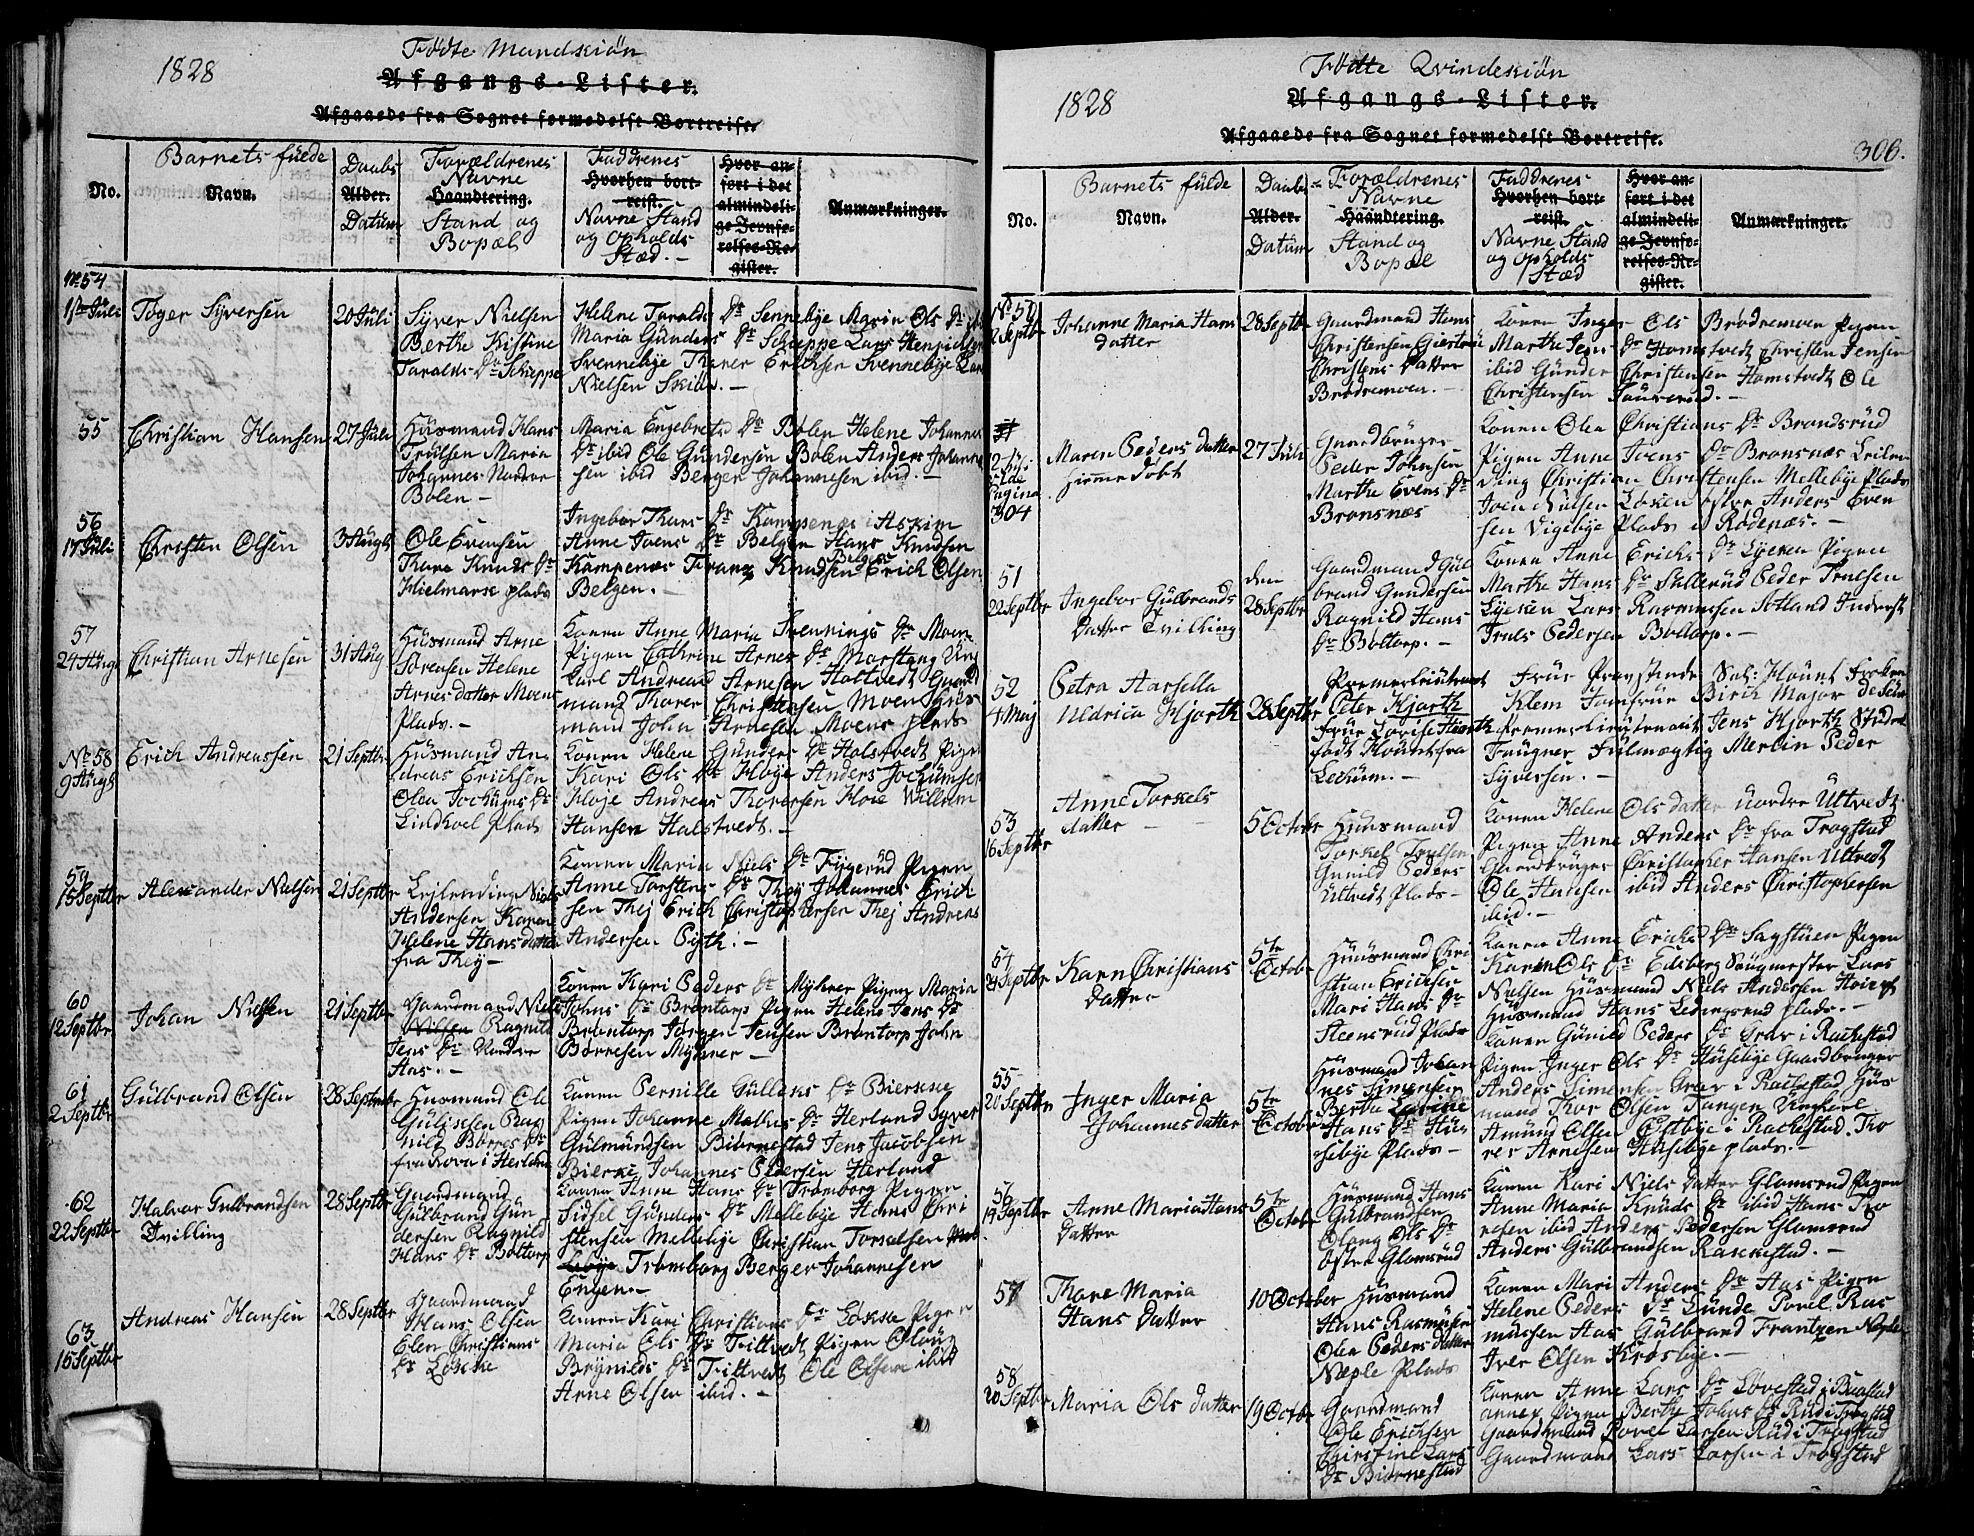 1828
Fødte Mandkiøn
Afgangs-Lister.
Afgaaede fra Sognet formedelst Bortreise.
No.
Barnets fulde
Navn.
Daabs
Alder.
Datum
Forældrenes
Navne
Haandtering.
Stand og
Bopæl
Faddrenes
Hvorhen bort-
reist.
Navne Stand
og Opholds
Stæd.-
Hvor an-
ført i det
almindeli-
ge Jevnfø-
relses-Re-
gister.
Anmærkninger.
No 54
1ste Juli
Toger Syversen
20 Juli
Syver Nielsen
Berthe Kistine
Taralds Dr Schieppe
Helene Taralds Dr Sennebye Maria Ols Dr
Maria Gunders Dr Schieppe Lars Henrichsen
Svennebye Thorer Ericksen Svennebye Lars
Nielsen Skibs.-
55
Christian Hansen
27 Juli
Husmand Hans
Trulsen Maria
Johannes Nordre
Bølen-
Maria Engebrets Dr Bølen Helene Johannes
Dr ibid Ole Gundersen Bølen Anders Johanne
sen ibid Berger Johannesen ibid.-
56
17 Juli
Christen Olsen
3 Augt
Ole Evensen
Thara Knuds Dr
Hielmarke plads
Ingebor Thars Dr Kampenæs i Askim
Anne Ivens Dr Belgen Hans Knudsen
Kampenæs Franz Knudsen Belgen Erich Olsen
Belgen.-
57
24 Augt
Christian Arnesen
31 Aug
Husmand Arne
Sørensen Helene
Arnes datter Moens
Plads.-
Konen Anne Maria Svennings Dr Moen
Pigen Cathrine Arnes Dr Morstang Ung
Karl Andreas Arnesen Holtvedt Gaard
mand Thorer Christensen Moen Hus
mand John Arnesen Moens plads
No 58
9 Augt
Erich Andreassen
21 Septbr
Husmand An
dreas Ericksen
Olea Jochums Dr
Lindhoel Plads
Konen Helene Gunders Dr Holstvedt Pigen
Kari Ols Dr Høye Anders Jochumsen
Høje Andreas Thoresen Høie Willum
Hansen Halstvedt.-
59
15 Septbr
Alexander Nielsen
21 Septbr
Leylending Niels
Andersen Karen
Helene Hans datter
fra Thej-
Konen Maria Niels Dr Fyggerud Pigen
Anne Torstens Dr Thej Johannes Erich
sen Thej Erich Christophersen Thej Andreas
Andersen Gyth.-
60
12 Septbr
Johan Nielsen
21 Septbr
Gaardmand Niels
Nilsen Ragnild
Jens Dr Nordre
Aas.-
Konen Kari Peders Dr Myhrer Pigen Maria
Johns Dr Brontorp Pigen Helene Jens Dr
Brøntorp Jørgen Jensen Brøntorp John
Børresen Myhrer-
61
2 Septbr
Gulbrand Olsen
28 September
Husmand Ole
Gulicksen Rag
nild Børres Dr
fra Rova i Herland
Konen Pernille Gullens Dr Bierkne
Pigen Johanne Mathis Dr Herland Syver
Gulmundsen Biørnestad Jens Jacobsen
Bierke Johannes Pedersen Herland
62
22 Septbr
Halvor Gulbrandsen
Tvilling
28 Septbr
Gaardmand
Gulbrand Gun
dersen Ragnild
Hans Dr Bøltorp
Konen Anne Hans Dr Trømborg Pigen
Sidsel Gunders Dr Mellebye Hans Chri
stensen Mellebye Christian Torkelsen Mel
lebye Trømborg Berger Johannesen
Engen.-
63
15 Septbr
Andreas Hansen
28 Septbr
Gaardmand
Hans Olsen
Elen Christians
Dr Løkke
Konen Kari Christians Dr Løkka Pigen
Maria Ols Dr Triltvedt Pigen Olaug
Brynilds Dr Triltvedt Ole Olsen ibid
Arne Olsen ibid.-
1828
Fødte Qvindekiøn
Afgangs-Lister.
Afgaaede fra Sognet formedelst Bortreise.
306.
No.
Barnets fulde
Navn.
Daabs
Alder.
Datum
Forældrenes
Navne
Haandtering.
Stand og
Bopæl
Faddrenes
Hvorhen bort-
reist.
Navne Stand
og Opholds
Stæd
Hvor an-
ført i det
almindeli-
ge Jevnfø-
relses-Re-
gister.
Anmærkninger.
No 50
2 Septbr
Johanne Maria Hans
datter
28 Septbr
Gaardmand Hans
Christensen Giertrud
Christens Datter
Brødremoen.-
Konen Inger Ols Brødremoen Pigen
Marthe Jens Dr Homstvedt Christen Jensen
ibid Gunder Christensen Homstvedt Ole
Christensen Taurerud.-
2 Juli
pagina
304
Maren Peders datter
hjemme døbt
27 Juli
Gaardbruger
Peder Johnsen
Marthe Evens Dr
Bronsnæs
Konen Olea Christians Dr Brandsrud
Pigen Anne Ivens Dr Bronsnæs Leilen
ding Christian Christensen Mellebye Plads
Iven Nielsen Løken østre Anders Even
sen Vigebye Plads i Rødenæs.-
51
22 Septbr
Ingebor Gulbrands
Datter Tvilling
den
28 Septbr
Gaardmand Gul
brand Gundersen
Ragnild Hans
Dr Bøltorp.-
Konen Anne Erichs Dr Lyeren Pigen
Marthe Hans Dr Sallerud Peder Trulsen
Lycken Lars Rasmussen Sotland Inderst
Truls Pedersen Boltorp.-
52
4 Maj
Petra Harsella
Uldrica Hjorth
28 Septbr
Premierleutnant
Peter Hjorth
Frue Lovise Hiorth
født Hount fra
Lechum.-
Frue Provstinde Sal: Hount Frøken
Klem Jomfrue Birch Major de Seue
Premierlieutenant Jens Hjorth Studen
Faugner Fulmægtig Merlin Peder
Syversen.-
53
16 Septbr
Anne Torkels
datter
5 October
Huusmand
Torkel Trulsen
Gunild Peders
Ultvedt Plads-
Konen Helene Ols datter nordre Ultvedt
Pigen Anne Anders Dr fra Trøgstad
Gaardbruger Christopher Hansen Ultvedt
Ole Hansen ibid Anders Christophersen
ibid.-
54
24 Septbr
Karn Christians
datter
5te
October
Huusmand Chri
stian Ericksen
Mari Hans Dr
Steensrud Plads
Konen Anne Ericks Dr Sagstuen Pigen
Karin Ols Dr Edsberg Saugmester Lars
Nielsen Husmand Niels Andersen
Husmand Hans Ledingsrud plads.-
55
20 Septbr
Inger Maria
Johannes datter
5te
October
Husmand Johan
nes Simensen
Bertha Lovine
Hans Dr Hus
sebye Plads-
Konen Gunild Peders Dr Grav i Rackestad
Pigen Inger Ols Dr Husebye Gaardbruger
Anders Simensen Grav i Rackestad Hus
mand Thor Olsen Tangen Ungkarl
Amund Olsen Østbye i Rackestad. Tho
rer Arnesen Husebye plads.-
56
19 Septbr
Anne Maria Hans
Datter
5te
October
Husmand Hans
Gulbrandsen
Olaug Ols Dr
østre Glomsrud
Konen Kari Niels Datter Glomsrud Pigen
Anne Maria Knuds Dr ibid Hans Tho
resen ibid Anders Pedersen Glomsrud
Anders Gulbrandsen Rakkestad.-
57
Thore Maria
Hans Datter
10 October
Husmand
Hans Rasmusen
Olea Peders datter
Næple Plads
Konen Mari Anders Dr Aas Pigen
Helene Peders Dr Lunde Povel Ras
mussen Aas Gulbrand Frantzen Næple
Iver Olsen Krosbye.-
58
20 Septbr
Maria Ols datter
19 Octbr
Gaardmand
Ole Ericksen
Christine Lars
Dr Biørnestad
Konen Anne Lars Dr Løvestad i Baastad
annex Pigen Berthe Johns Dr Rud i Trøgstad
Gaardmand Povel Larsen Rud i Trøgstad
Gaardmand Lars Larsen i Trøgstad